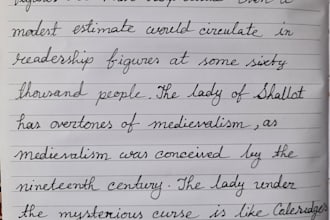 modest estimate would circulate in
readership figures at some sixty
thousand people. The lady of Shallot
has overtones of medievalism, as
medievalism was conceived by the
nineteenth century. The lady under
the mysterious curse is like Coleridge